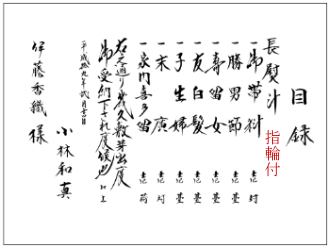 目録
指輪付
長熨斗
一御帯料 壱封
一勝男節 壱台
一寿留女 壱台
一友白髪 壱台
一子生婦 壱台
一末広 壱対
一家内喜多留 壱荷
右之通り幾久敷芽出度
御受納下され度候也 以上
平成拾九年
小林和真
伊藤香織様